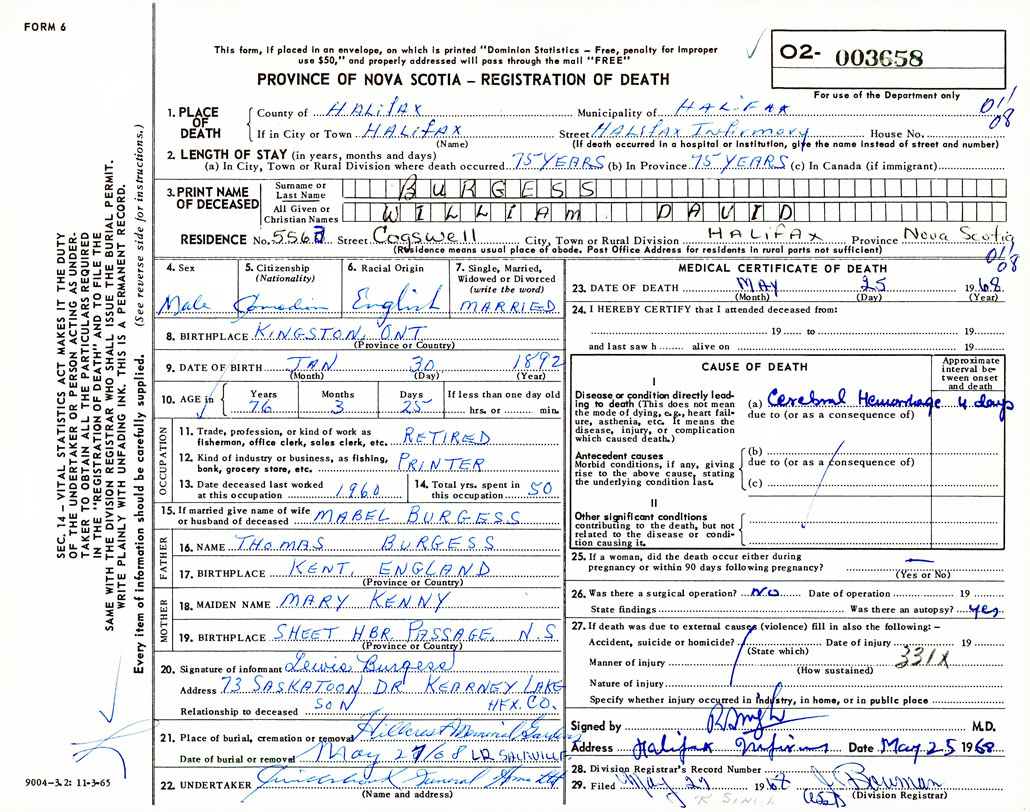 FORM 6
This form, if placed in an envelope, on which is printed "Dominion Statistics – Free, penalty for improper
use $50," and properly addressed will pass through the mail "FREE"
PROVINCE OF NOVA SCOTIA – REGISTRATION OF DEATH
O2- 003658
For use of the Department only
011
08
1. PLACE OF DEATH
County of HALIFAX Municipality of HALIFAX
If in City or Town HALIFAX Street HALIFAX INFIRMARY House No.
(Name) (If death occurred in a hospital or institution, give the name instead of street and number)
2. LENGTH OF STAY (in years, months and days)
(a) In City, Town or Rural Division where death occurred 75 YEARS (b) In Province 75 YEARS (c) In Canada (if immigrant)
3. PRINT NAME OF DECEASED
Surname or Last Name BURGESS
All Given or Christian Names WILLIAM DAVID
RESIDENCE No. 5563 Street Cogswell City, Town or Rural Division HALIFAX Province Nova Scotia
(Residence means usual place of abode. Post Office Address for residents in rural parts not sufficient)
011
08
4. Sex
Male
5. Citizenship
(Nationality)
Canadian
6. Racial Origin
English
7. Single, Married,
Widowed or Divorced
(write the word)
MARRIED
8. BIRTHPLACE KINGSTON, ONT
(Province or Country)
9. DATE OF BIRTH JAN 30 1892
(Month) (Day) (Year)
10. AGE in
Years Months Days If less than one day old
76 3 25 hrs. or min.
OCCUPATION
11. Trade, profession, or kind of work as
fisherman, office clerk, sales clerk, etc. RETIRED
12. Kind of industry or business, as fishing,
bank, grocery store, etc. PRINTER
13. Date deceased last worked
at this occupation 1960
14. Total yrs. spent in
this occupation 50
15. If married give name of wife
or husband of deceased MABEL BURGESS
FATHER
16. NAME THOMAS BURGESS
17. BIRTHPLACE KENT, ENGLAND
(Province or Country)
MOTHER
18. MAIDEN NAME MARY KENNY
19. BIRTHPLACE SHEET HBR. PASSAGE, N.S
(Province or Country)
20. Signature of informant Lewis Burgess
Address 73 SASKATOON DR KEARNEY LAKE
HFX. CO.
Relationship to deceased SON
21. Place of burial, cremation or removal Hillcrest Memorial Gardens
Date of burial or removal May 27/68 LR. SACKVILLE
22. UNDERTAKER Funeral Home
(Name and address)
MEDICAL CERTIFICATE OF DEATH
23. DATE OF DEATH MAY 25 1968
(Month) (Day) (Year)
24. I HEREBY CERTIFY that I attended deceased from:
19 to 19
and last saw h alive on 19
CAUSE OF DEATH
Approximate interval between onset and death
I
Disease or condition directly leading to death (This does not mean
the mode of dying, e.g., heart failure, asthenia, etc. It means the
disease, injury, or complication
which caused death.)
(a) Cerebral Hemorrhage 4 days
due to (or as a consequence of)
Antecedent causes
Morbid conditions, if any, giving
rise to the above cause, stating
the underlying condition last.
(b)
due to (or as a consequence of)
(c)
II
Other significant conditions
contributing to the death, but not
related to the disease or condition causing it.
25. If a woman, did the death occur either during
pregnancy or within 90 days following pregnancy? —
(Yes or No)
26. Was there a surgical operation? NO Date of operation 19
State findings Was there an autopsy? Yes
27. If death was due to external causes (violence) fill in also the following:–
Accident, suicide or homicide? Date of injury 19
(State which)
331X
Manner of injury
(How sustained)
Nature of injury
Specify whether injury occurred in industry, in home, or in public place
Signed by R Singh M.D.
Address Halifax Infirmary Date May 25 1968
28. Division Registrar's Record Number
29. Filed May 27 1968 J. Bowman
(Division Registrar)
K. SINGH
SEC. 14 – VITAL STATISTICS ACT MAKES IT THE DUTY
OF THE UNDERTAKER OR PERSON ACTING AS UNDERTAKER TO OBTAIN ALL THE PARTICULARS REQUIRED
IN THE "REGISTRATION OF DEATH" AND TO FILE THE
SAME WITH THE DIVISION REGISTRAR WHO SHALL ISSUE THE BURIAL PERMIT.
WRITE PLAINLY WITH UNFADING INK. THIS IS A PERMANENT RECORD.
Every item of information should be carefully supplied. (See reverse side for instructions.)
9004-3.2: 11-3-65